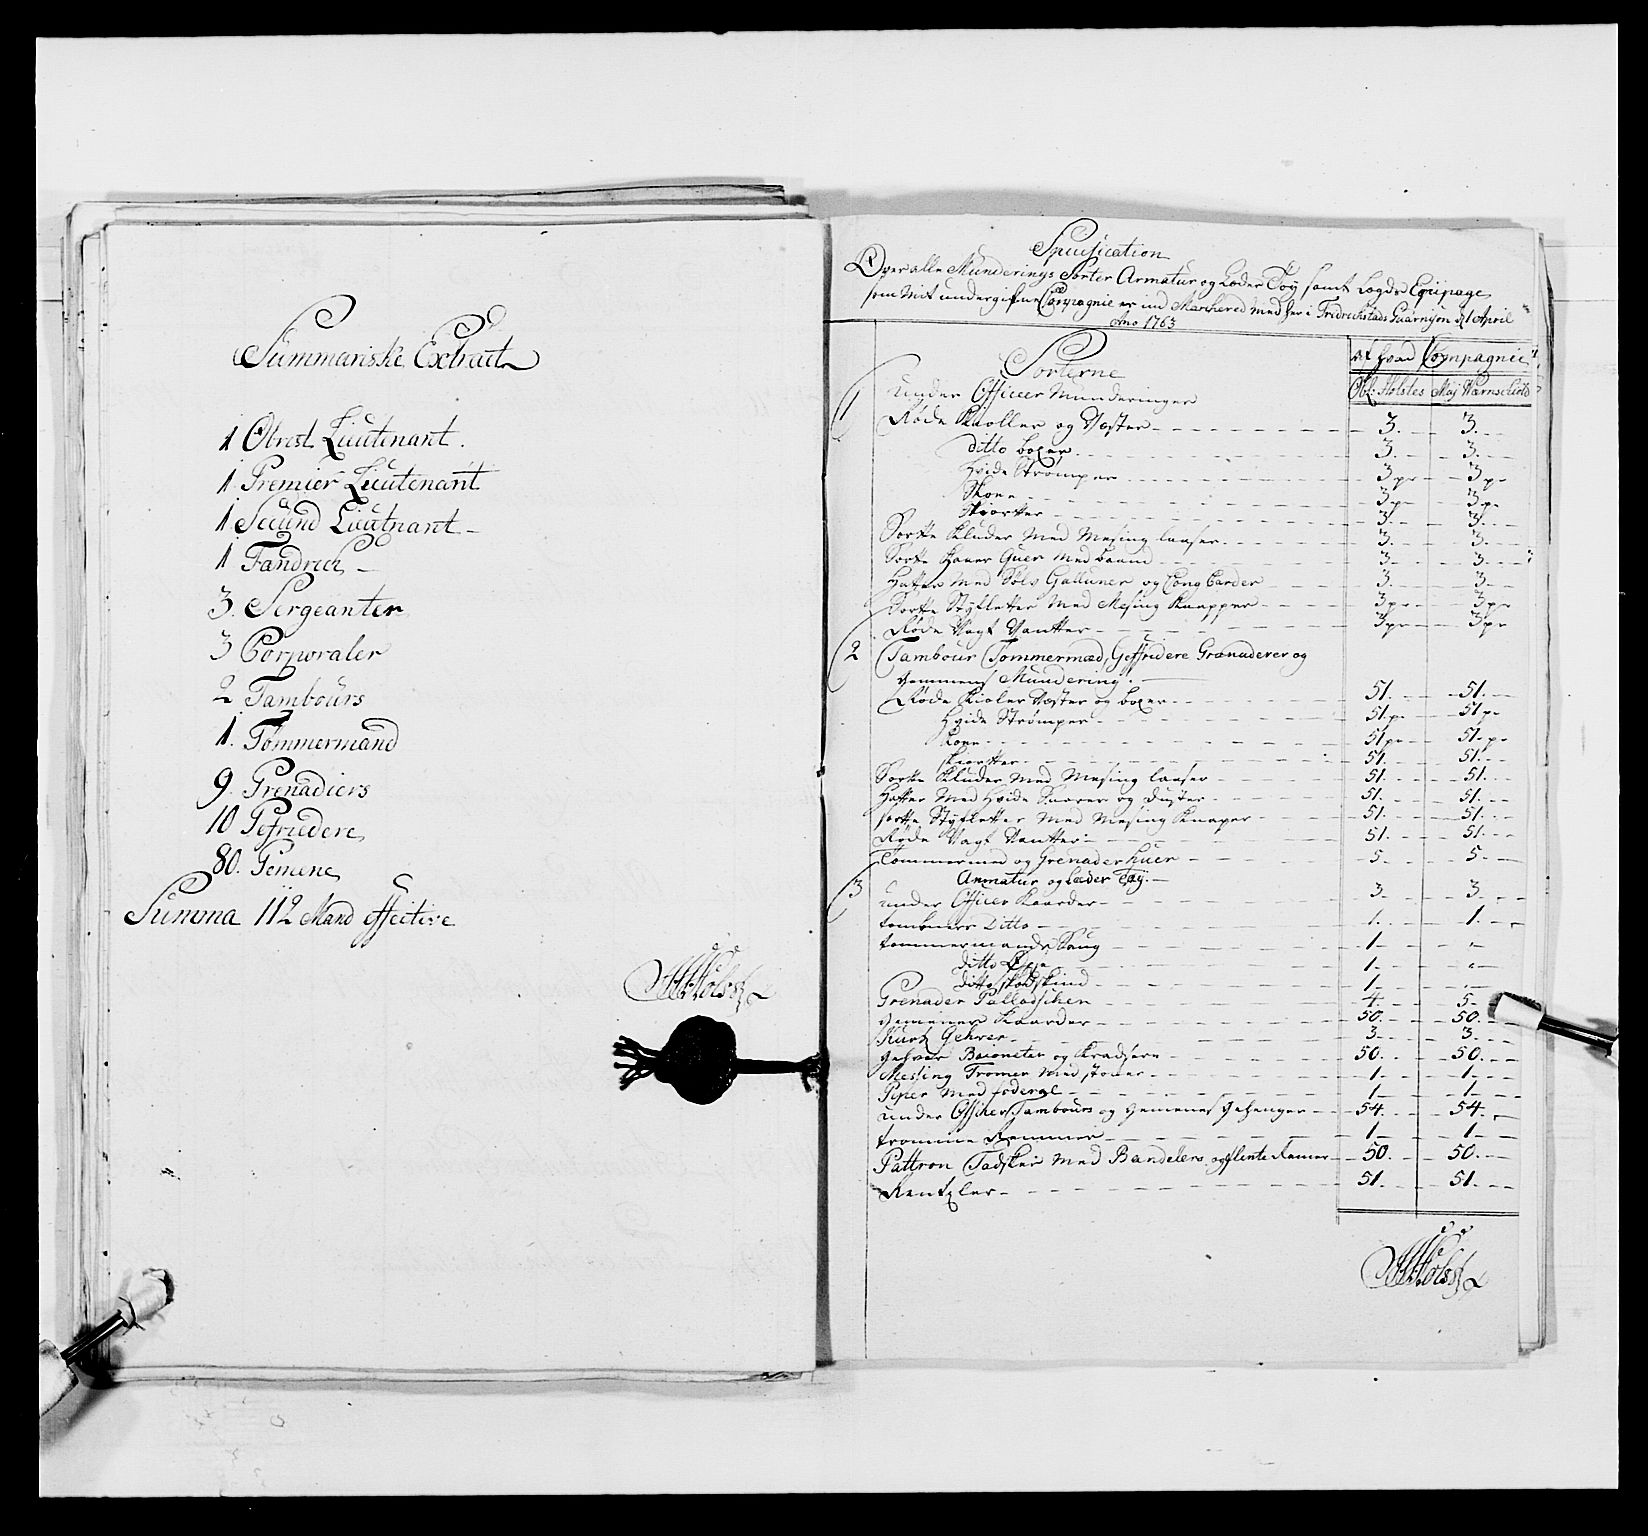 Summariske Extract
1 Obrest Lieutenant.
1 Premier Lieutenant
1 Secund Lieutnant
1 Fandrich
3. Sergeanter
3 Corporaler
2 Tambours
1. Tømmermand
9. Grenadiers
10 Gefriedere
80. Gemene
Summa 112 Mand effective
Specification
Over alle Munderings Sorter Armatur og Læder Tøÿ samt Lægds Eqvipage
som Mit undergifne Compagnie er ind Marchered med her i Fredrichstads Guarnison d 1 April
Ano 1763
Sorterne
af hvad Compagnie
Obl: Holstes Maj Wærnschiold
1 Under Officer Munderinger
Røde Kioller og Væster 3. 3.
ditto boxer 3. 3.
Hvide Strømper 3 pr 3 pr
Skoee 3 pr 3 pr
Skiorter 3. 3.
Sorte Kluder Med Mesing laaser 3. 3.
Sorte Haar Med baand 3 3.
Hatter med Sølv Galluner og Cong Carder 3. 3
Sorte Støfletter Med Mesing Knapper 3 pr 3 pr
Røde Vagt Vantter 3 pr 3 pr
2 Tambour Tømmermæd, Geffridere Granaderer og
Gemmens Mundering.
Røde Kioler Væster og boxer 51. 51.
Hvide Strømper 51 pr 51 pr
Skoee 51 pr 51 pr
Skiortter 51. 51.
Sorte Kluder Med Mesing laaser 51. 51.
Hatter Med Hvide Snorer og Duster 51. 51.
sorte Støfletter Med Mesing Knaper 51. 51.
Røde Vagt Vantter 51. 51.
Tømmermed og Grenader huer 5 5.
3 Armatur og Læder Tøÿ.
Under Officer Kaarder 3 3
tambuurs Ditto 1. 1.
tømmermands Kaarde 1
ditto Øxe 1.
ditto skiødskind 1
Grenader Palladscher 4. 5
gemeener Kaarder 50. 50.
Kurtz Gehrer 3 3.
gehrer Baioneter og Kradsere 50. 50.
Messing Tromer Med stocker 1 1.
Piper med foderal 1 1
under Officher Tambours og gemenes gehenger 54. 54.
tromme Remmer 1 1
Pattron Tadsker Med Bandelers og flente Remer 50. 50.
Rentzler 51. 51.